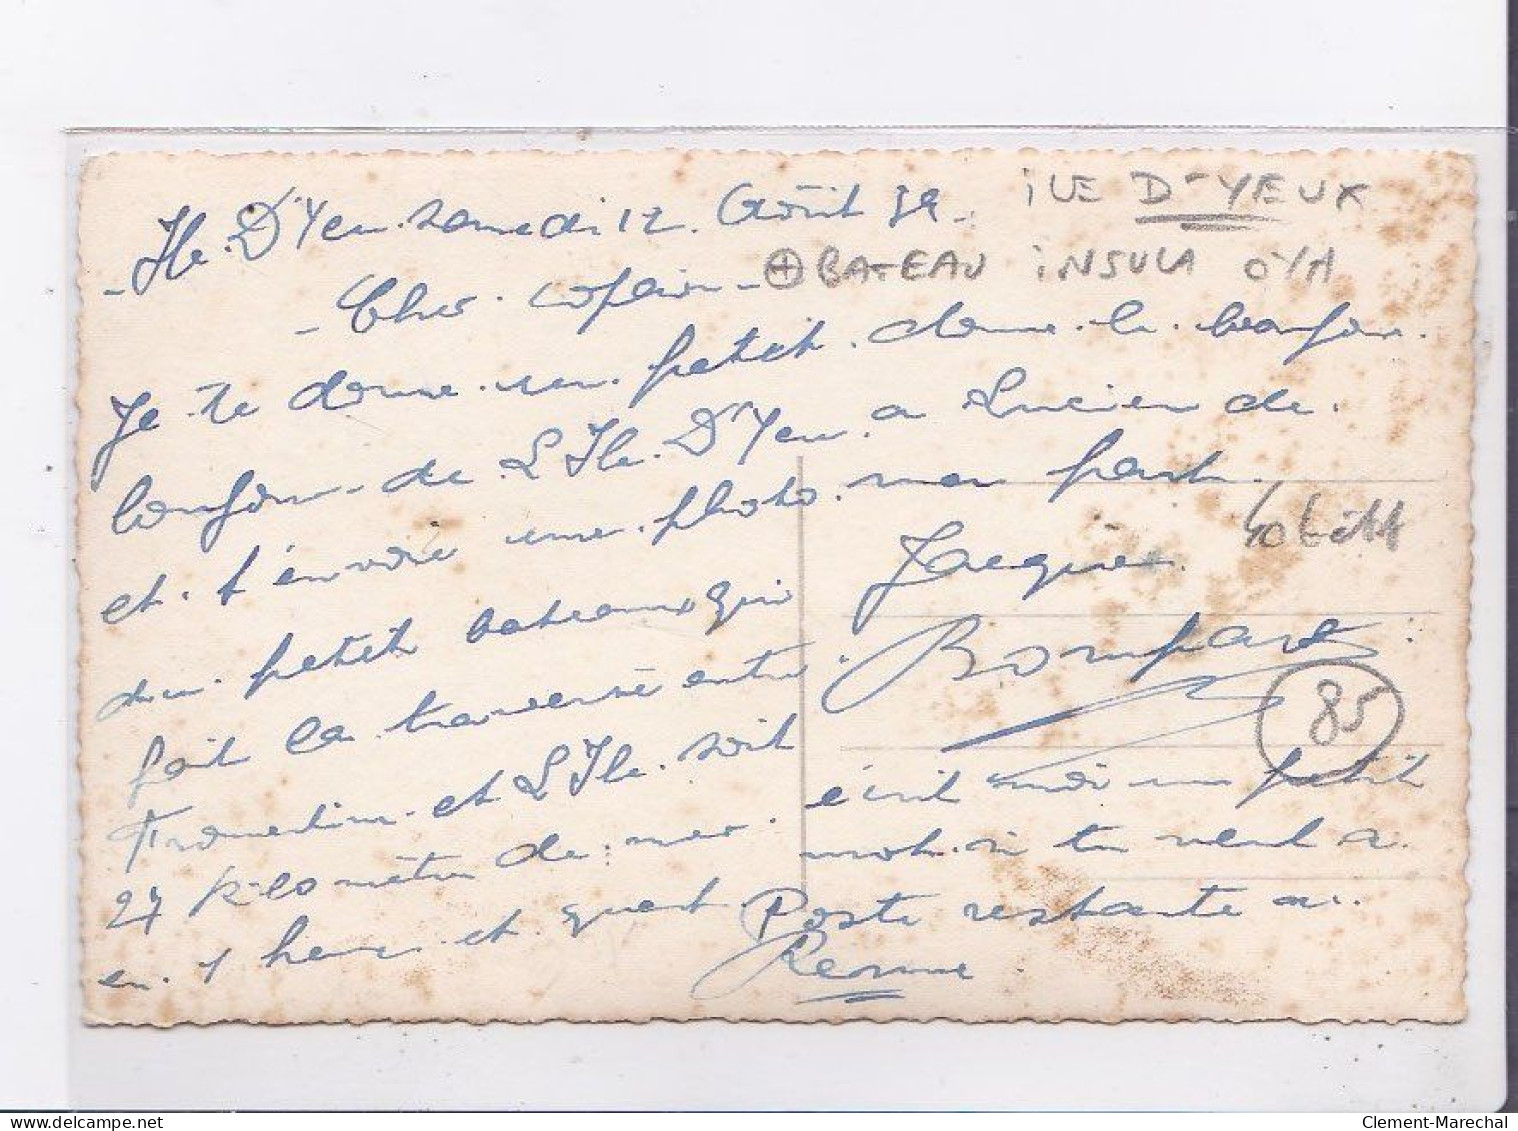 - Ile. D'Yeu. samedi 12. Août 39 -
- Cher. copain -
Je te donne. un. petit
bonjour - de L'Ile. D'Yeu.
et. t'envoie une. photo.
du. petit bateaux qui
fait la traversée entre
Fromentine. et L'Ile. soit
27 kilomètre de. mer.
en. 1 heure. et. quart.
donne. le. bonjour.
a Lucien de.
mon part.
Jacques
Bompart
écrit moi un petit
mot. si tu veut a.
Poste restante a.
Renne
iLE D'YEUX
BATEAU iNSULA
85
delcampe.net
Clement-Marechal